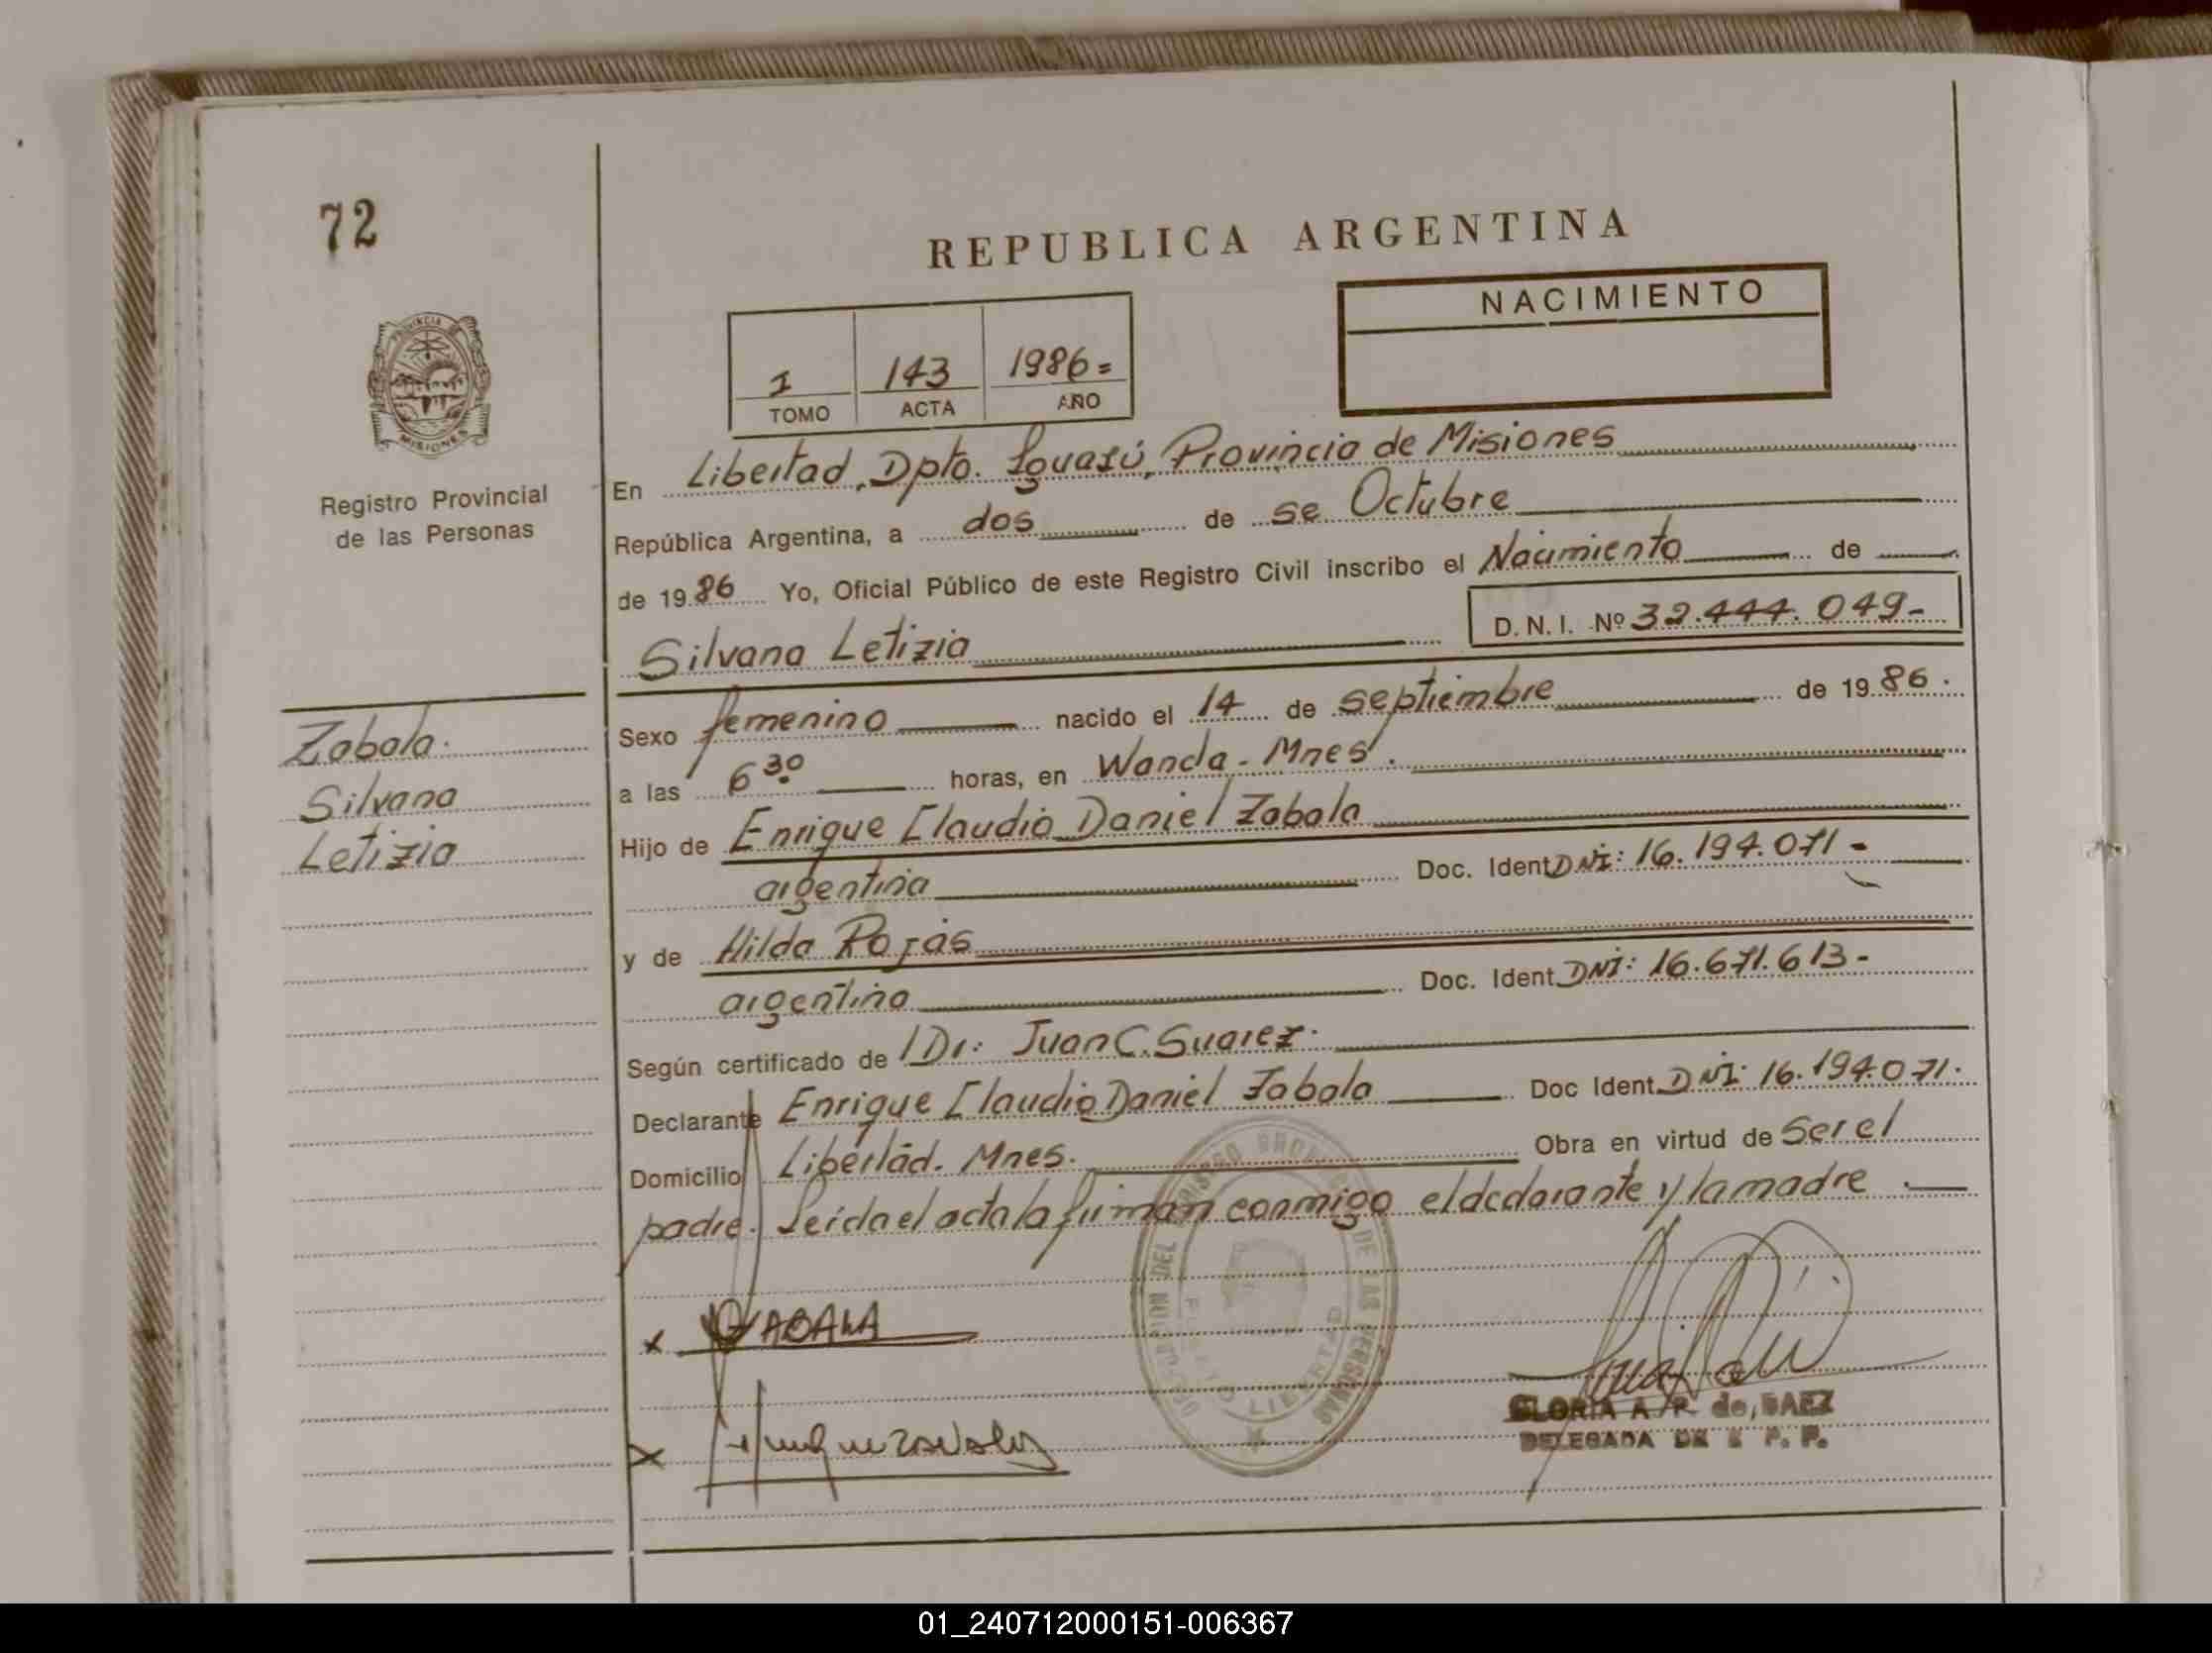 72
REPUBLICA ARGENTINA
NACIMIENTO
I 143 1986=
TOMO ACTA AÑO
PROVINCIA DE MISIONES
Registro Provincial
de las Personas
En Libertad, Dpto. Iguazú, Provincia de Misiones
República Argentina, a dos de se Octubre
de 1986 Yo, Oficial Público de este Registro Civil inscribo el Nacimiento de
Silvana Letizia D.N.I. Nº 32.444.049-
Zabala.
Silvana
Letizia
Sexo femenino nacido el 14 de septiembre de 1986.
a las 6 30 horas, en Wanda - Mnes.
Hijo de Enrique Claudio Daniel Zabala
argentina Doc. Ident DNI: 16.194.071-
y de Hilda Rojas
argentina Doc. Ident DNI: 16.671.613-
Según certificado de Dr: Juan C. Suarez.
Declarante Enrique Claudio Daniel Zabala Doc Ident DNI: 16.194.071.
Domicilio Libertad. Mnes. Obra en virtud de Ser el
padre. Leída el acta la firman conmigo el declarante y la madre.
x ZABALA
x
GLORIA A. P. de BAEZ
DELEGADA DE R. P. P.
01_240712000151-006367